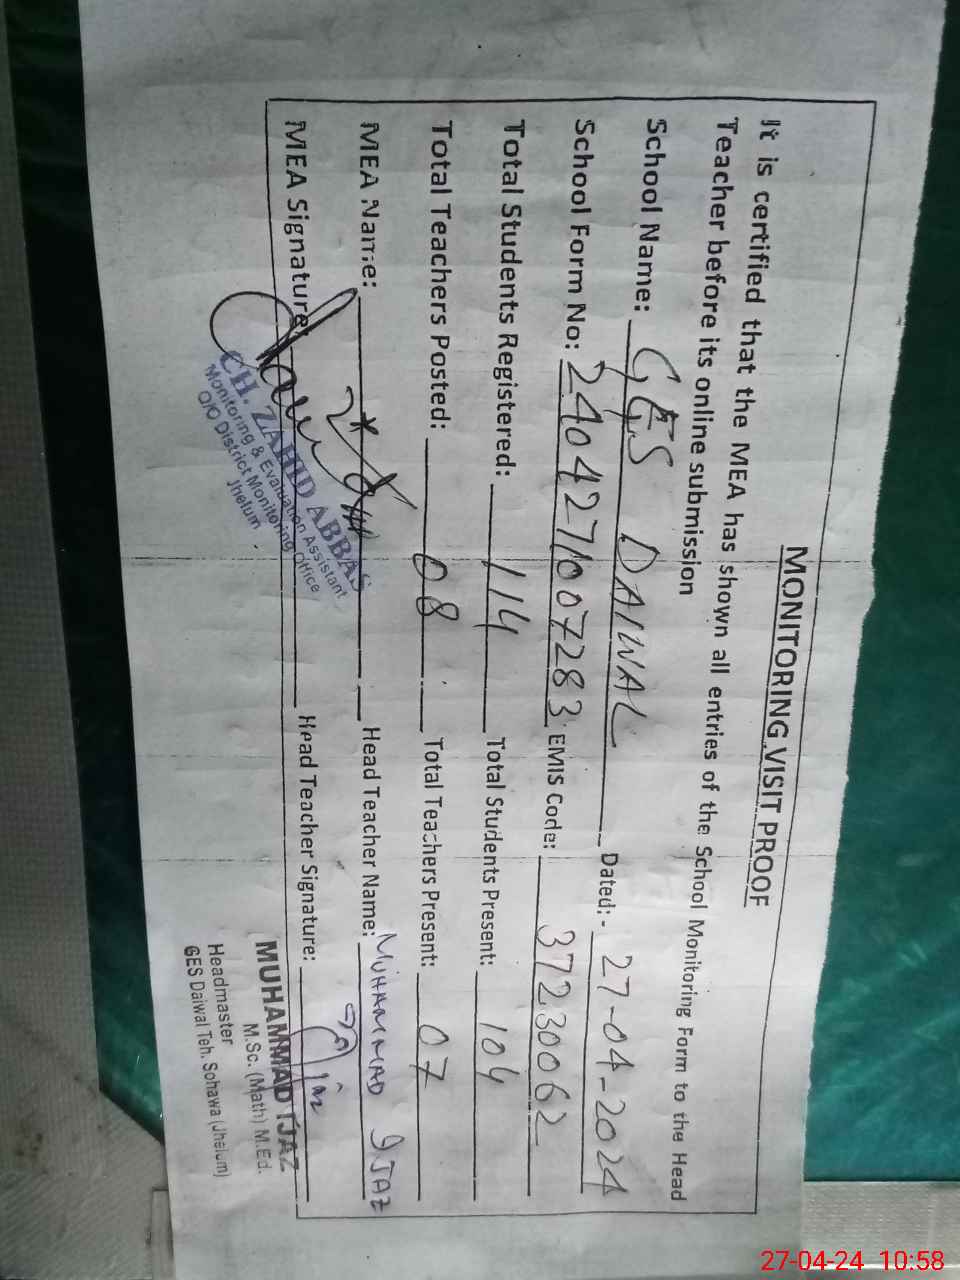 MONITORING VISIT PROOF
It is certified that the MEA has shown all entries of the School Monitoring Form to the Head
Teacher before its online submission
School Name: GES DAIWAL Dated: - 27-04-2024
School Form No: 2404271007283 EMIS Code: 37230062
Total Students Registered: 114 Total Students Present: 104
Total Teachers Posted: 08 Total Teachers Present: 07
MEA Name: Head Teacher Name: MUHAMMAD IJAZ
MEA Signature: Head Teacher Signature:
CH. ZAHID ABBAS
Monitoring & Evaluation Assistant
O/O District Monitoring Office
Jhelum
MUHAMMAD IJAZ
M.Sc. (Math) M.Ed.
Headmaster
GES Daiwal Teh. Sohawa (Jhelum)
27-04-24 10:58